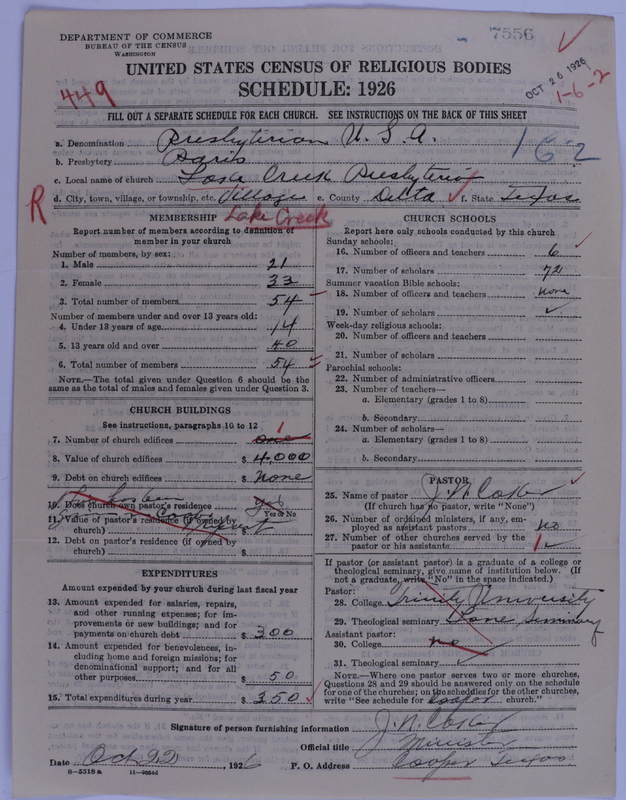 DEPARTMENT OF COMMERCE
BUREAU OF THE CENSUS
WASHINGTON
7556
UNITED STATES CENSUS OF RELIGIOUS BODIES
OCT 26 1926
1-6-2
449
SCHEDULE: 1926
FILL OUT A SEPARATE SCHEDULE FOR EACH CHURCH. SEE INSTRUCTIONS ON THE BACK OF THIS SHEET
a. Denomination Presbyterian U.S.A.
162
b. Presbytery Paris
c. Local name of church Lake Creek Presbyterian
d. City, town, village, or township, etc. Village e. County Delta f. State Texas
R
Lake Creek
MEMBERSHIP
Report number of members according to definition of
member in your church
Number of members, by sex:
1. Male 21
2. Female 33
3. Total number of members 54
Number of members under and over 13 years old:
4. Under 13 years of age 14
5. 13 years old and over 40
6. Total number of members 54
NOTE.—The total given under Question 6 should be the
same as the total of males and females given under Question 3.
CHURCH BUILDINGS
See instructions, paragraphs 10 to 12
1
7. Number of church edifices one
8. Value of church edifices $ 4,000
9. Debt on church edifices $ None
10. Does church own pastor's residence yes
Yes or No
11. Value of pastor's residence (if owned by
church) $
12. Debt on pastor's residence (if owned by
church) $
EXPENDITURES
Amount expended by your church during last fiscal year
13. Amount expended for salaries, repairs,
and other running expenses; for im-
provements or new buildings; and for
payments on church debt $ 300
14. Amount expended for benevolences, in-
cluding home and foreign missions; for
denominational support; and for all
other purposes $ 50
15. Total expenditures during year $ 350
CHURCH SCHOOLS
Report here only schools conducted by this church
Sunday schools:
16. Number of officers and teachers 6
17. Number of scholars 72
Summer vacation Bible schools:
18. Number of officers and teachers None
19. Number of scholars
Week-day religious schools:
20. Number of officers and teachers
21. Number of scholars
Parochial schools:
22. Number of administrative officers
23. Number of teachers—
a. Elementary (grades 1 to 8)
b. Secondary
24. Number of scholars—
a. Elementary (grades 1 to 8)
b. Secondary
PASTOR
25. Name of pastor J. N. Coker
(If church has no pastor, write "None")
26. Number of ordained ministers, if any, em-
ployed as assistant pastors No
27. Number of other churches served by the
pastor or his assistants 1
If pastor (or assistant pastor) is a graduate of a college or
theological seminary, give name of institution below. (If
not a graduate, write "No" in the space indicated.)
Pastor:
28. College Trinity University
29. Theological seminary Lane Seminary
Assistant pastor:
30. College no
31. Theological seminary
NOTE.—Where one pastor serves two or more churches,
Questions 28 and 29 should be answered only on the schedule
for one of the churches; on the schedules for the other churches,
write "See schedule for Cooper church."
Signature of person furnishing information J. N. Coker
Official title Minister
Date Oct 22, 1926 P. O. Address Cooper Texas
8—5518 a 11—9054d